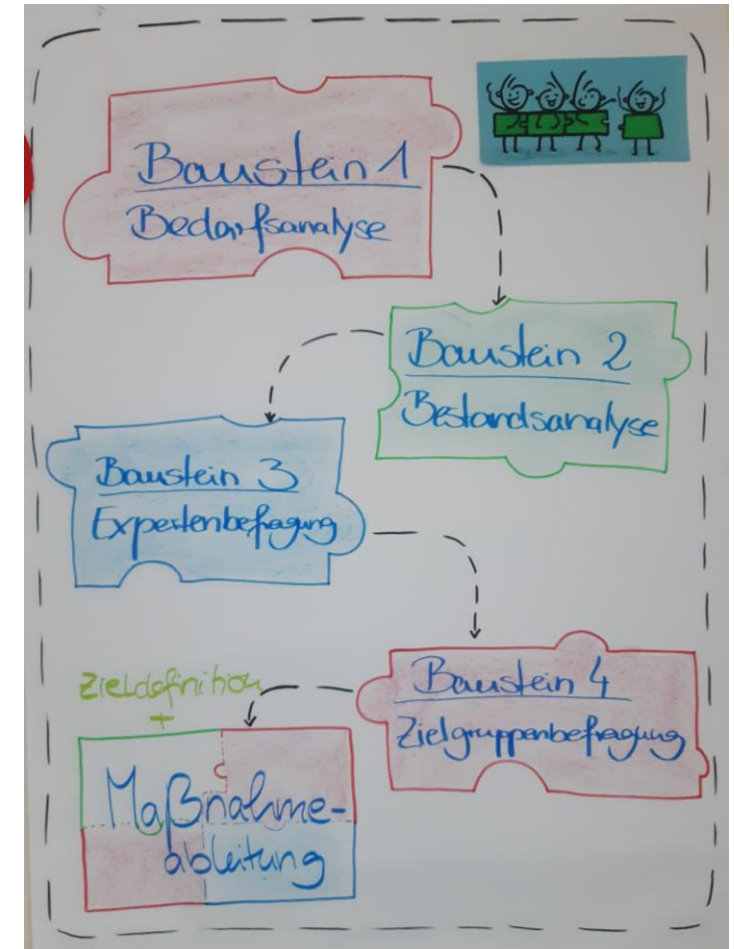 Baustein 1
Bedarfsanalyse
Baustein 2
Bestandsanalyse
Baustein 3
Expertenbefragung
Baustein 4
Zielgruppenbefragung
Zieldefinition
+
Maßnahme-
ableitung